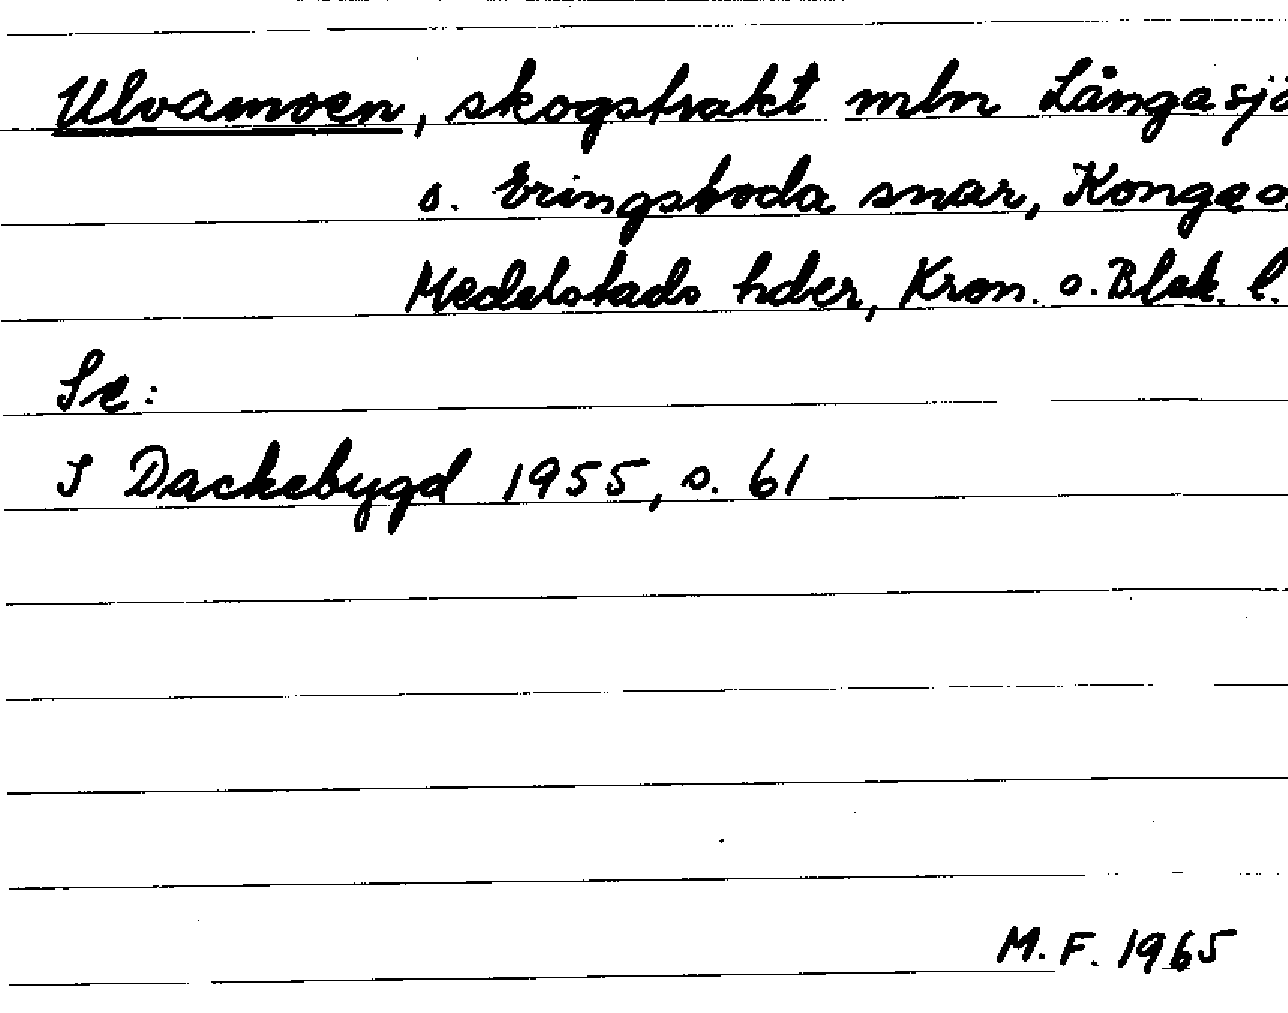 Ulvamoen, skogstrakt mln Långasjö
o. Eringsboda snar, Konga o.
Medelstads hder, Kron. o. Blek. l.
Se:
I Dackebygd 1955, s. 61
M.F. 1965